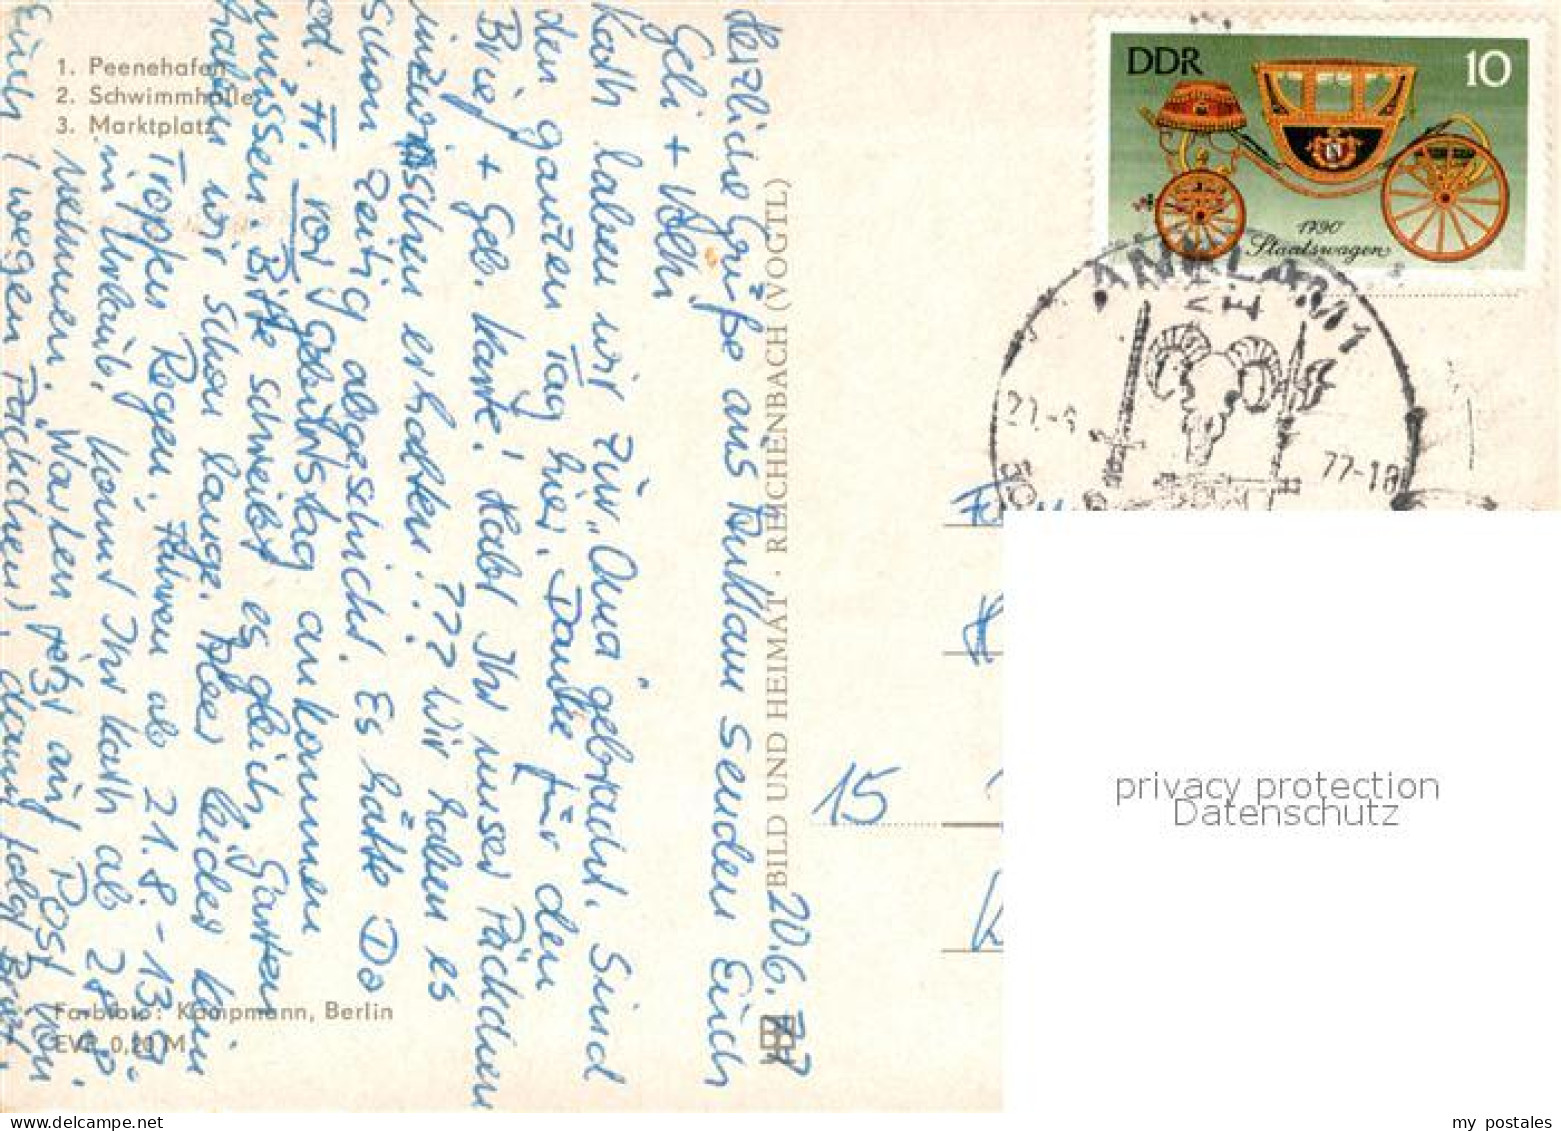 1. Peenehafen
2. Schwimmhalle
3. Marktplatz
DDR
10
1790
Staatswagen
ANKLAM 1
77-18
20.6.77
Herzliche Grüße aus Anklam senden Euch
Geli +
Kath haben wir zur „Oma" gebracht. Sind
den ganzen Tag hier. Danke für den
Brief + Geb. karte! Habt Ihr unser Päckchen
inzwischen erhalten? ??? Wir haben es
schon zeitig abgeschickt. Es hätte Do
od. Fr. vor Geburtstag ankommen
müssen. Bitte schreibt es gleich, Garten
haben wir schon lange. Aber leider kein
Tropfen Regen. Fahren ab 21.8. - 13.9.
in Urlaub. Könnt Ihr Kath ab 28.8.
nehmen. Warten jetzt auf Post von
Euch (wegen Päckchen), dann folgt Brief.
BILD UND HEIMAT · REICHENBACH (VOGTL)
15
Farbfoto: Kampmann, Berlin
EVP 0,20 M
privacy protection
Datenschutz
my postales